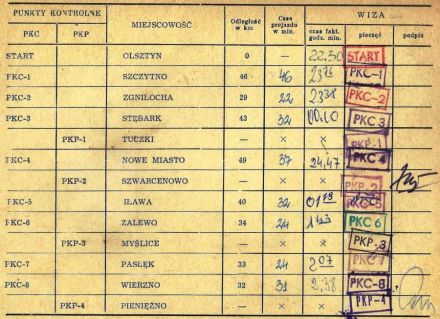 PUNKTY KONTROLNE MIEJSCOWOŚĆ Odległość w km Czas przejazdu w min. WIZA
PKC PKP czas fakt. godz. min. pieczęć podpis
START OLSZTYN 0 — 22.50 START
PKC-1 SZCZYTNO 46 46 PKC-1
PKC-2 ZGNIŁOCHA 29 22 2338 PKC-2
PKC-3 STĘBARK 43 32 00.10 PKC 3
PKP-1 TUCZKI — × × PKP-1
PKC-4 NOWE MIASTO 49 37 24,47 PKC 4
PKP-2 SZWARCENOWO — × × PKP-2
PKC-5 IŁAWA 40 32 01 19 PKC-5
PKC-6 ZALEWO 34 24 PKC 6
PKP-3 MYŚLICE — × × PKP-3
PKC-7 PASŁĘK 33 24 2 07 PKC 7
PKC-8 WIERZNO 32 31 2,38 PKC-8
PKP-4 PIENIĘŻNO — × × PKP-4